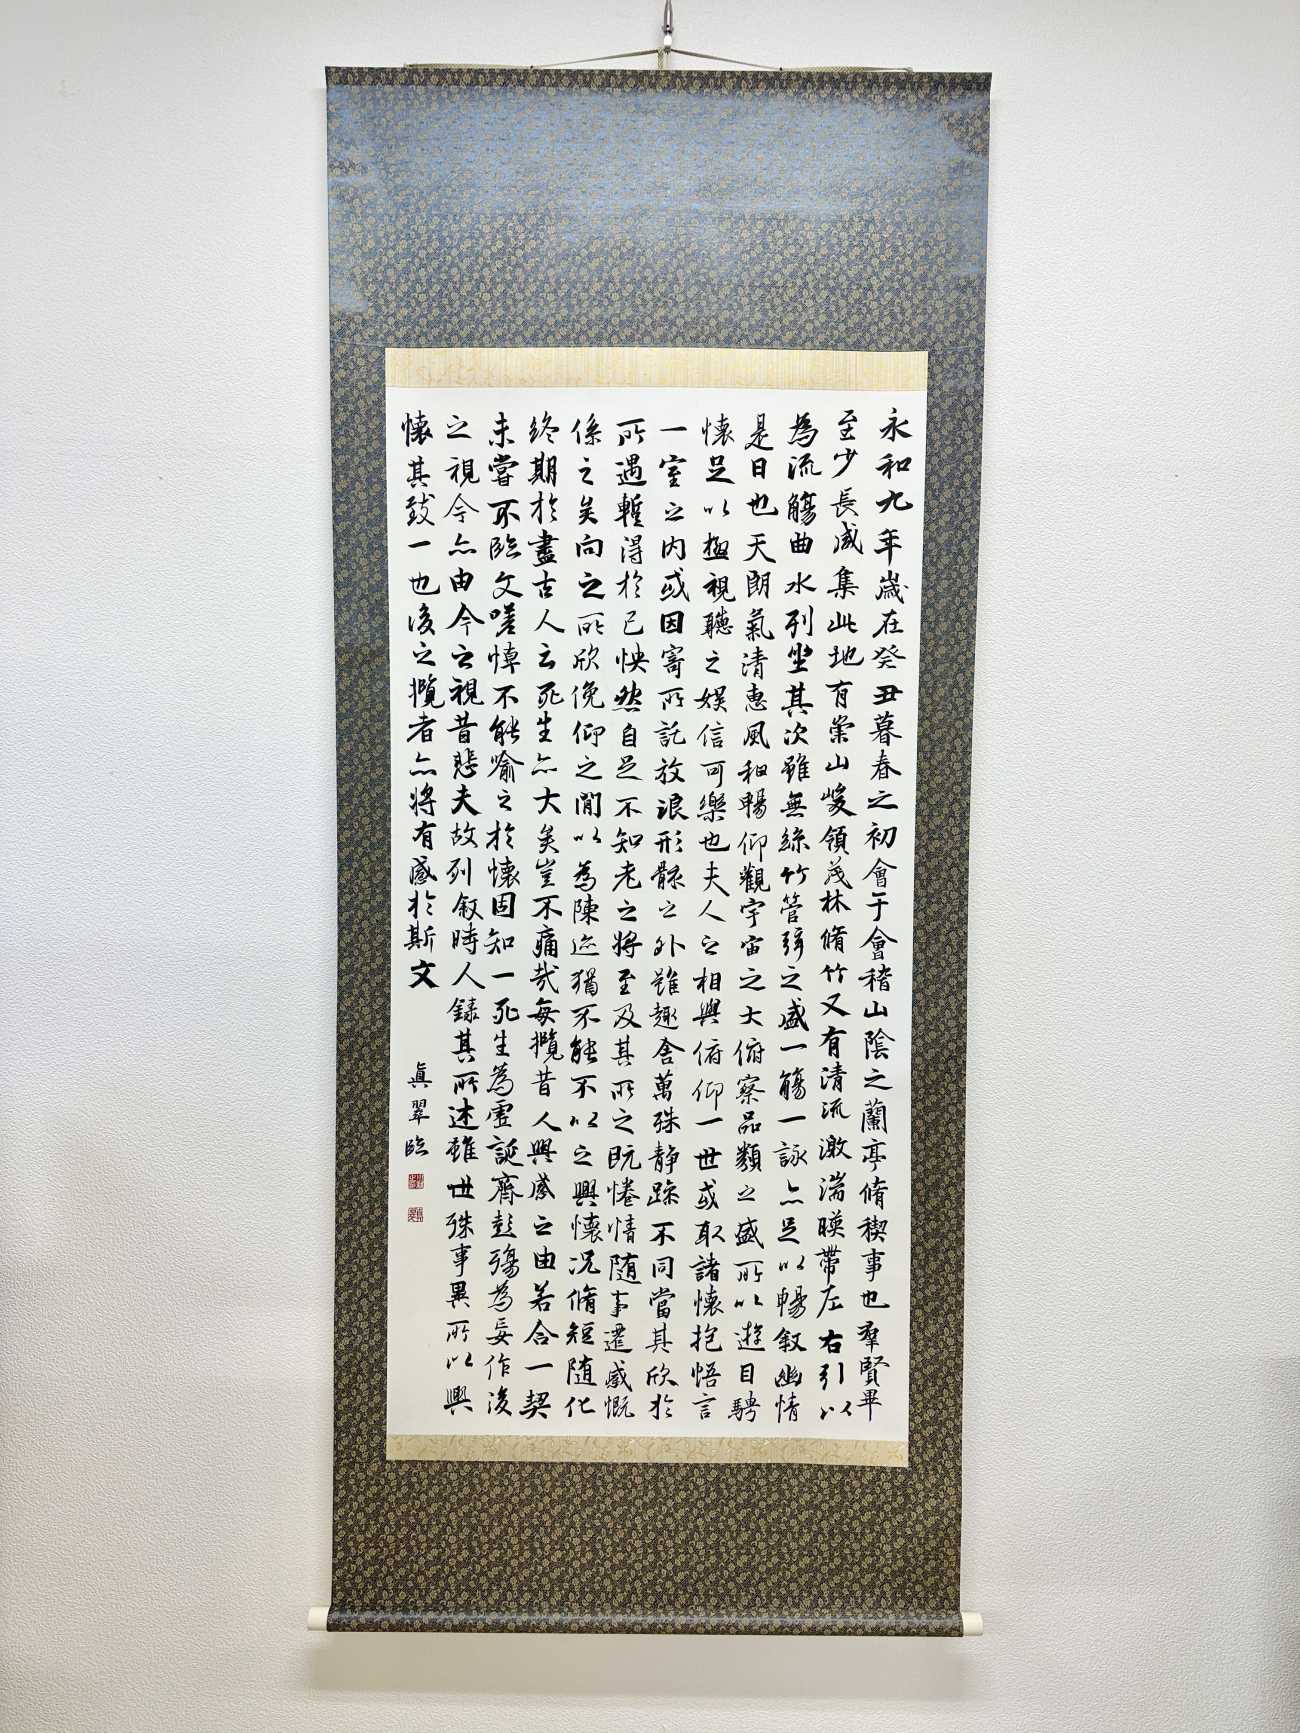 永和九年歳在癸丑暮春之初會于會稽山陰之蘭亭脩稧事也羣賢畢
至少長咸集此地有崇山峻領茂林脩竹又有清流激湍暎帶左右引以
為流觴曲水列坐其次雖無絲竹管弦之盛一觴一詠亦足以暢叙幽情
是日也天朗氣清惠風和暢仰觀宇宙之大俯察品類之盛所以遊目騁
懐足以極視聽之娯信可樂也夫人之相與俯仰一世或取諸懐抱悟言
一室之内或因寄所託放浪形骸之外雖趣舎萬殊静躁不同當其欣於
所遇暫得於己怏然自足不知老之將至及其所之既惓情随事遷感慨
係之矣向之所欣俛仰之閒以為陳迹猶不能不以之興懐况脩短随化
終期於盡古人云死生亦大矣豈不痛哉每攬昔人興感之由若合一契
未甞不臨文嗟悼不能喻之於懐固知一死生為虚誕齊彭殤為妄作後
之視今亦由今之視昔悲夫故列叙時人録其所述雖世殊事異所以興
懐其致一也後之攬者亦將有感於斯文
眞翠臨